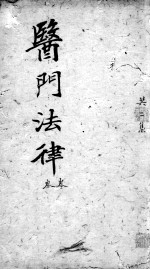 共二集
醫門法律